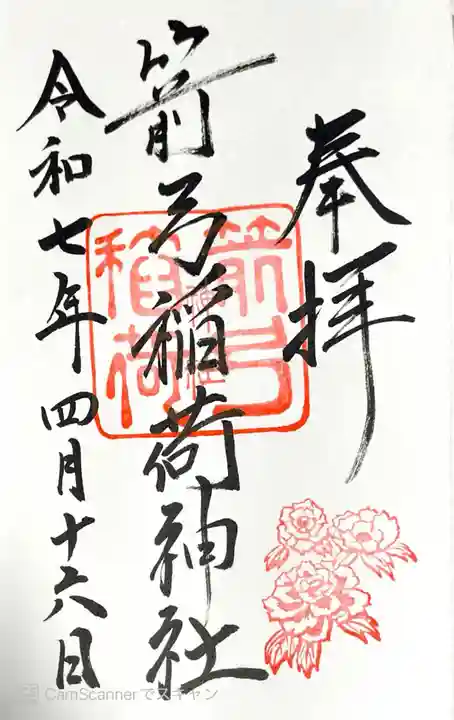 奉拝
箭弓稲荷神社
令和七年四月十六日
箭弓
稲荷
CamScannerでスキャン